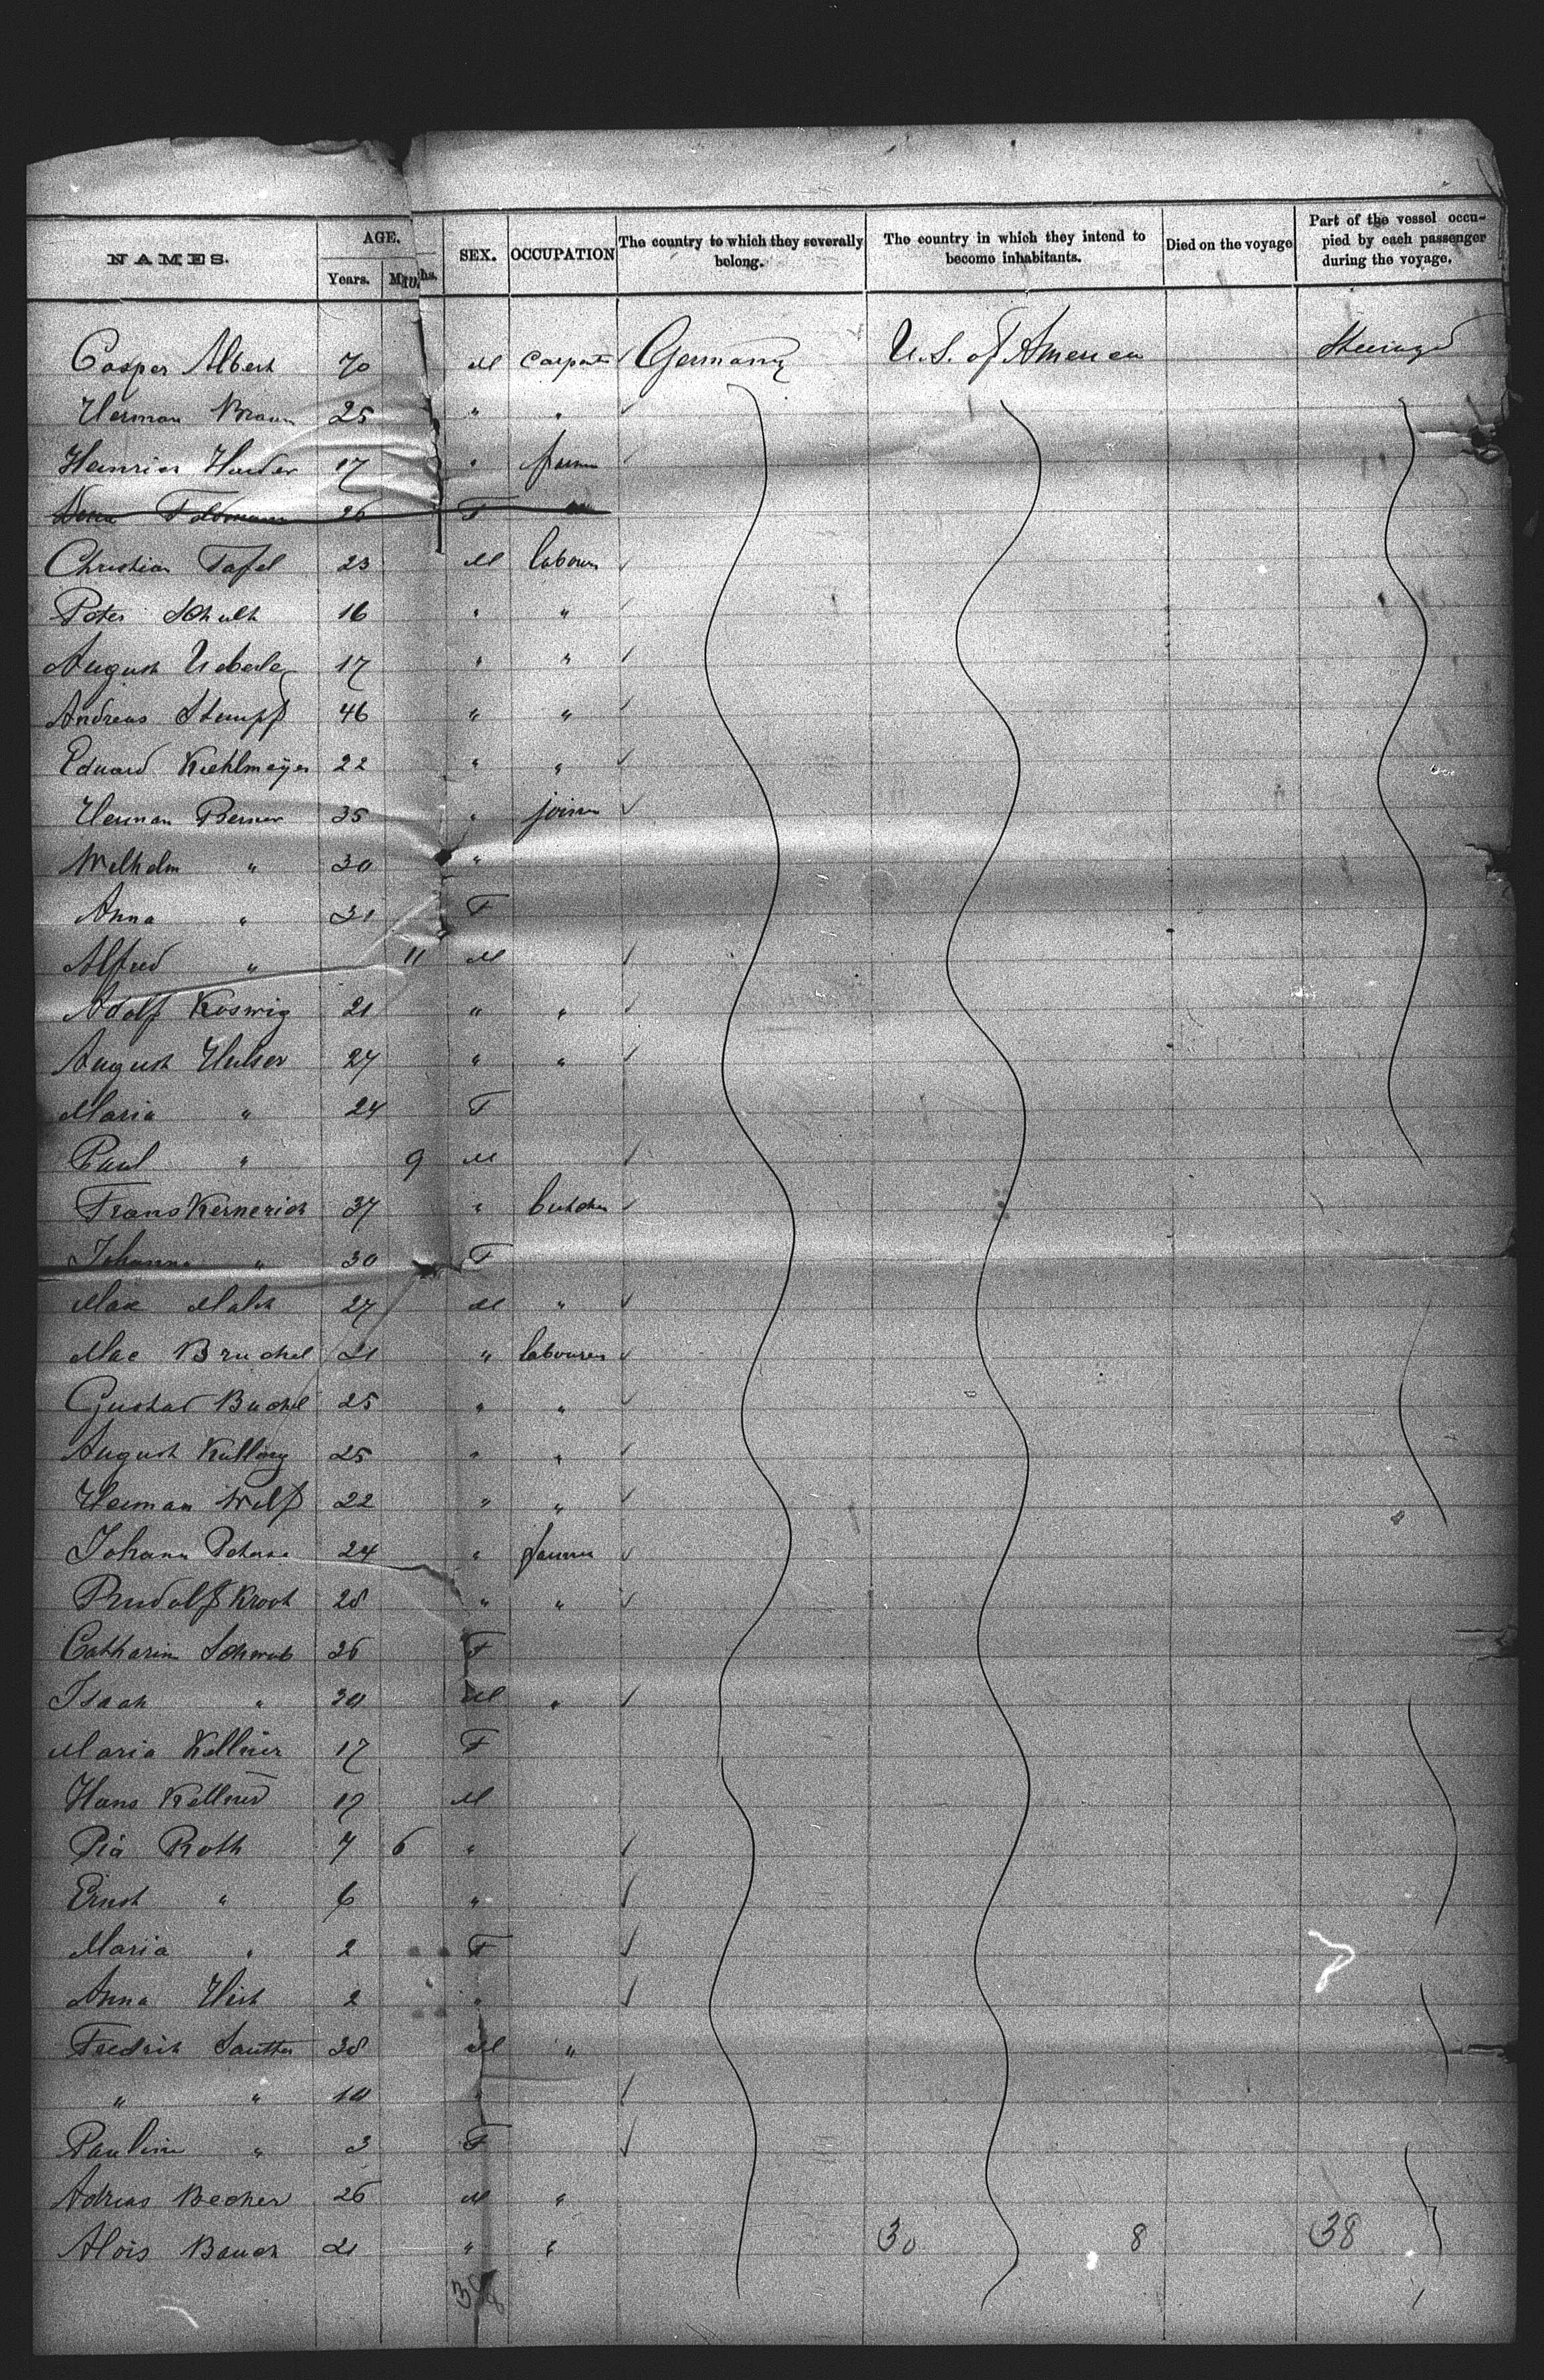 NAMES. AGE. Years. Mnths. SEX. OCCUPATION The country to which they severally belong. The country in which they intend to become inhabitants. Died on the voyage Part of the vessel occupied by each passenger during the voyage.
Casper Albert 70 M Carpent Germany U.S. of America Steerage
Herman Braun 25 " "
Heinrich 17 " farmer
26 F
Christian Tafel 23 M labourer
Peter Schult 16 " "
August Ueberle 17 " "
Andreas Stumpf 46 " "
Eduard Kiehlmeyer 22 " "
Herman Berner 35 " joiner
Wilhelm " 30 "
Anna " 31 F
Alfred " 11 M
Adolf Koswig 21 " "
August Hulser 27 " "
Maria " 24 F
Paul " 9 M
Frans Kernerich 37 " butcher
Johanna " 30 F
Max 27 M "
Mac Bruchel 21 " labourer
Gustav Buchel 25 " "
August 25 " "
Herman Wulf 22 " "
Johann 24 " farmer
Rudolf Kroot 28 " "
Catharin Schwab 26 F
Isaak " 30 M "
Maria Kellner 17 F
Hans Kellner 17 M
Pia Roth 7 6 "
Ernst " 6 "
Maria " 2 F
Anna 2 "
Fredrich Sautter 38 M "
" " 10 "
Pauline " 3 F
Adreas Becher 26 M "
Alois Bauch 21 " " 30 8 38
38